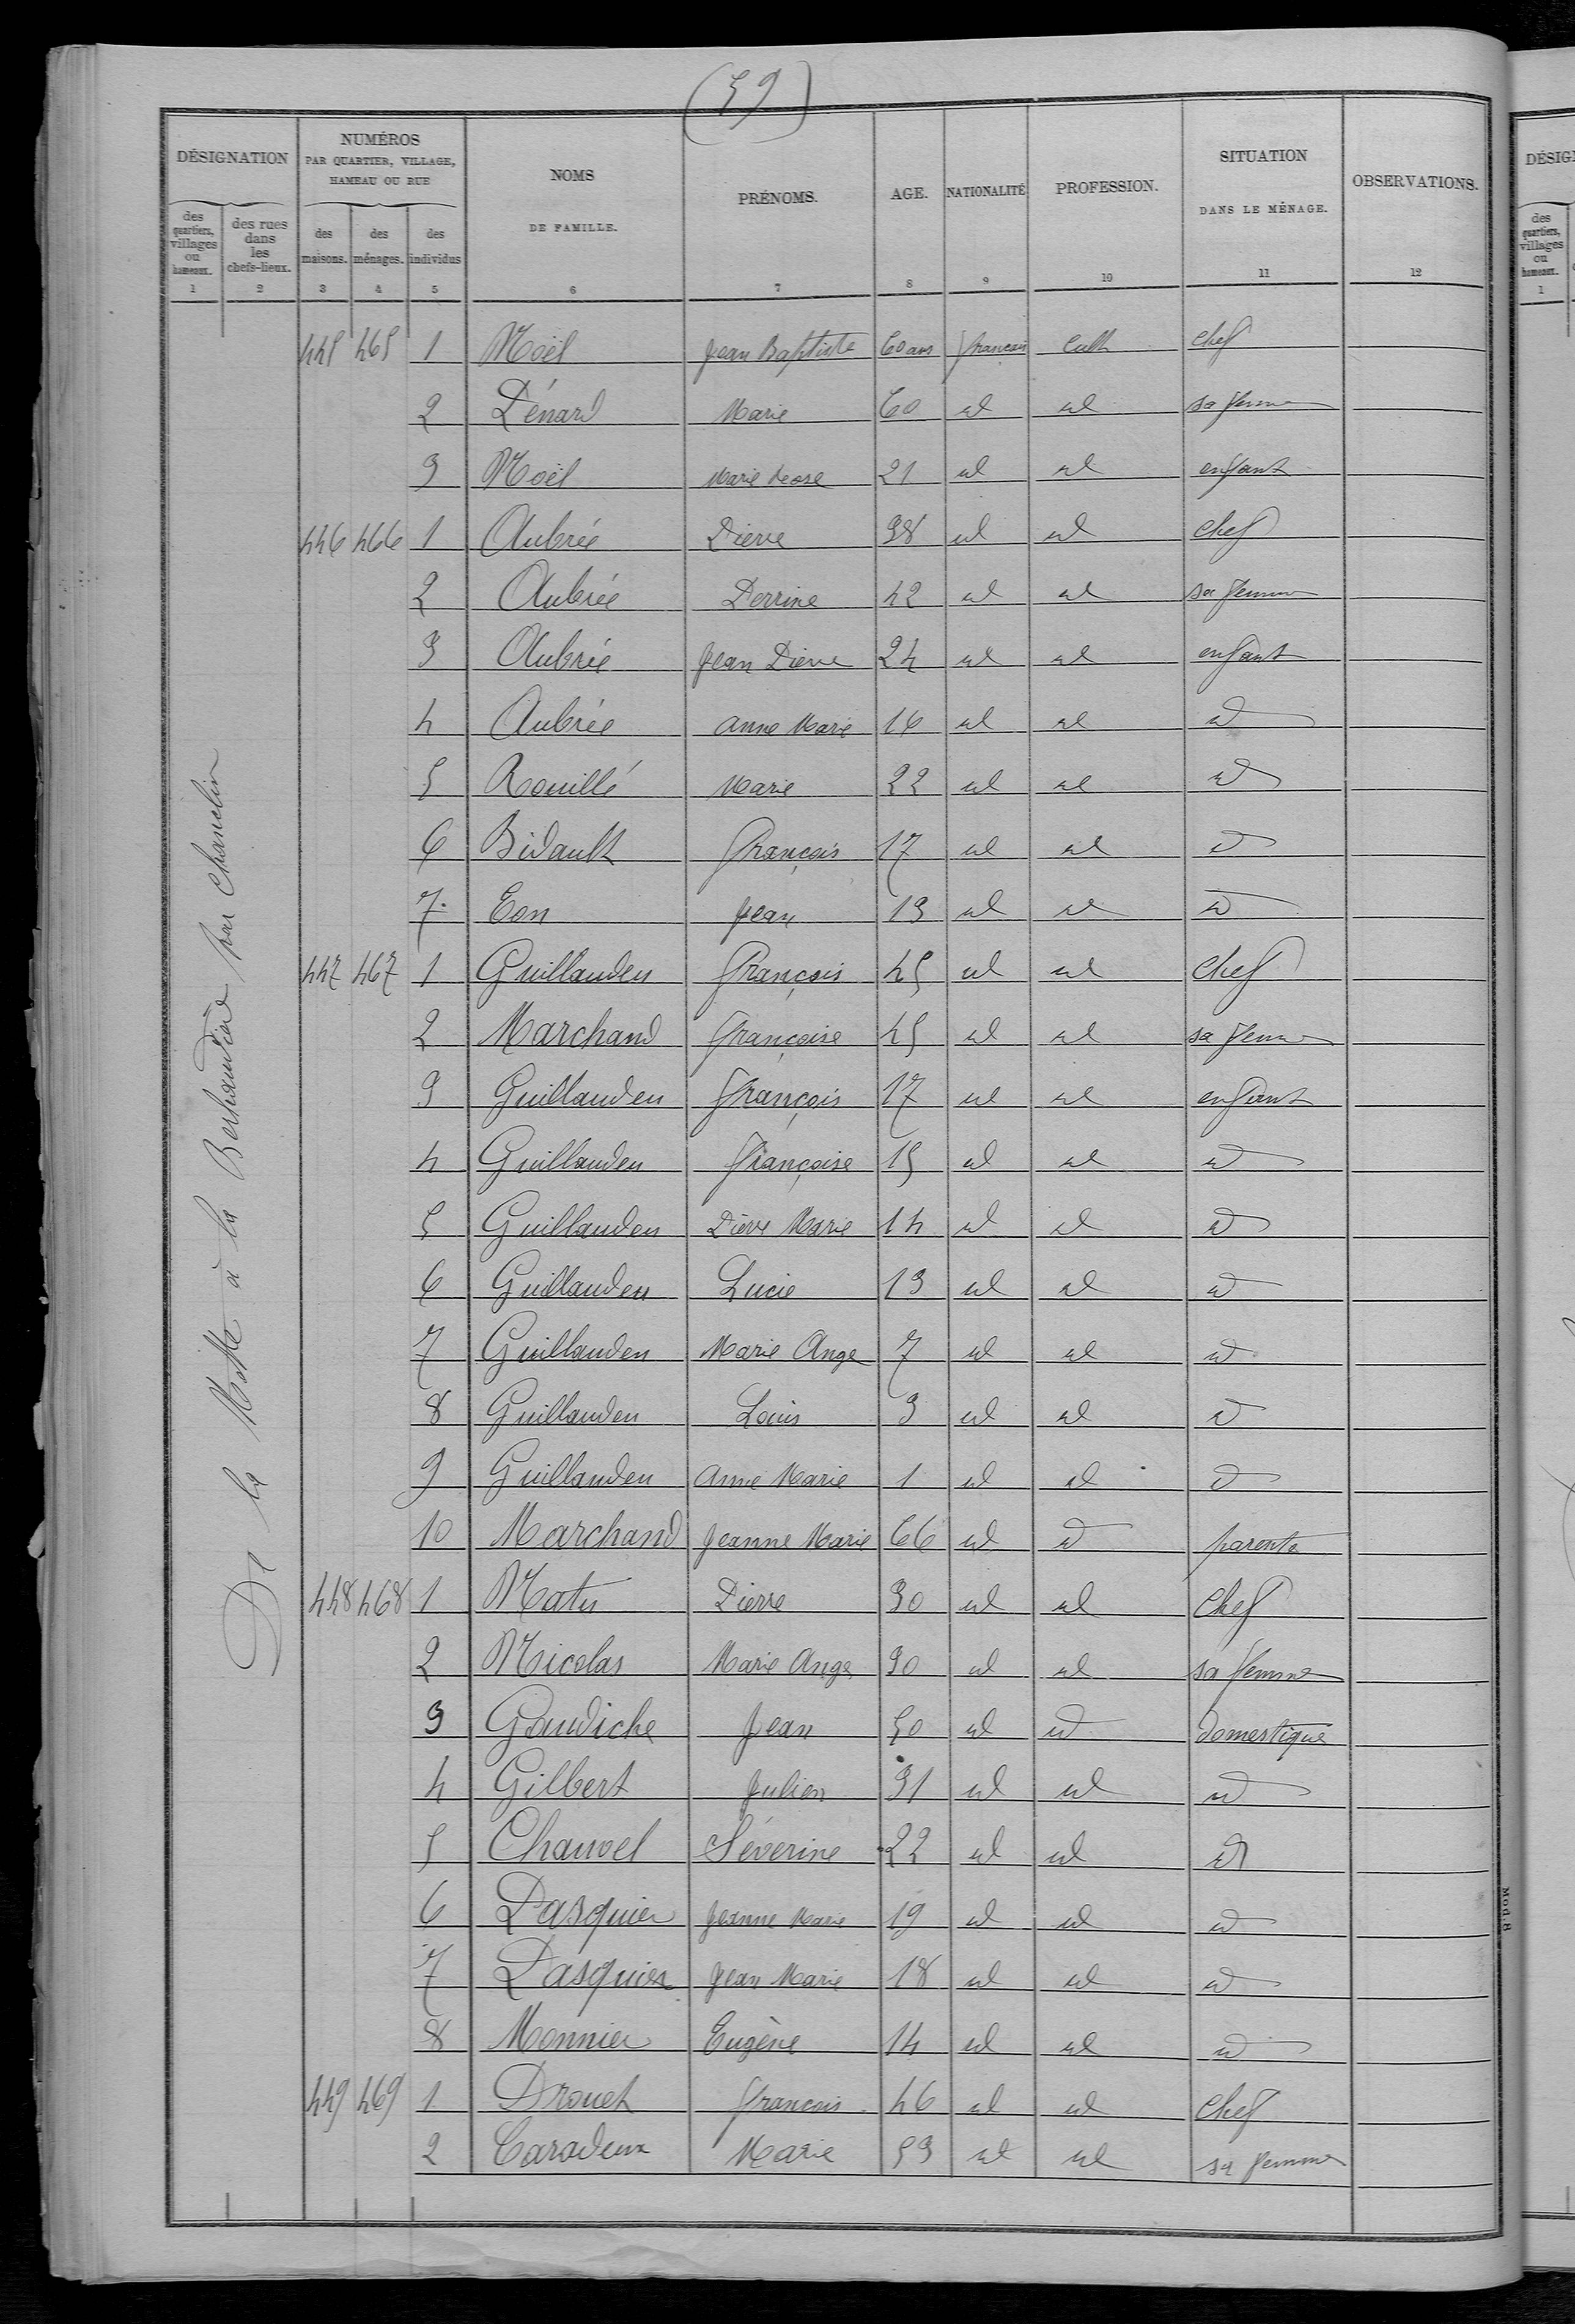 (59)
DÉSIGNATION
NUMÉROS
PAR QUARTIER, VILLAGE,
HAMEAU OU RUE
NOMS
DE FAMILLE.
PRÉNOMS.
AGE.
NATIONALITÉ
PROFESSION.
SITUATION
DANS LE MÉNAGE.
OBSERVATIONS.
des quartiers, villages ou hameaux.
des rues dans les chefs-lieux.
des maisons.
des ménages.
des individus
1 2 3 4 5 6 7 8 9 10 11 12
De la Motte à la Berhaudière par Chanclin
445 465 1 Noël Jean Baptiste 60 ans français Cult chef
2 Pénard Marie 60 id id sa femme
3 Noël Marie Rose 21 id id enfant
446 466 1 Aubrée Pierre 38 id id chef
2 Aubrée Perrine 42 id id sa femme
3 Aubrée Jean Pierre 24 id id enfant
4 Aubrée Anne Marie 16 id id id
5 Rouillé Marie 22 id id id
6 Bidault François 17 id id id
7 Eon Jean 13 id id id
447 467 1 Guillaudeu François 45 id id chef
2 Marchand Françoise 45 id id sa femme
3 Guillaudeu François 17 id id enfant
4 Guillaudeu Françoise 15 id id id
5 Guillaudeu Pierre Marie 14 id id id
6 Guillaudeu Lucie 13 id id id
7 Guillaudeu Marie Ange 7 id id id
8 Guillaudeu Louis 3 id id id
9 Guillaudeu Anne Marie 1 id id id
10 Marchand Jeanne Marie 66 id id parente
448 468 1 Natu Pierre 30 id id chef
2 Nicolas Marie Ange 30 id id sa femme
3 Gaudiche Jean 50 id id domestique
4 Gilbert Julien 31 id id id
5 Chauvel Séverine 22 id id id
6 Pasquier Jeanne Marie 19 id id id
7 Pasquier Jean Marie 18 id id id
8 Monnier Eugène 14 id id id
449 469 1 Drouet François 46 id id chef
2 Caradeux Marie 53 id id sa femme
Mod. 8
DÉSIG
des quartiers, villages ou hameaux.
1